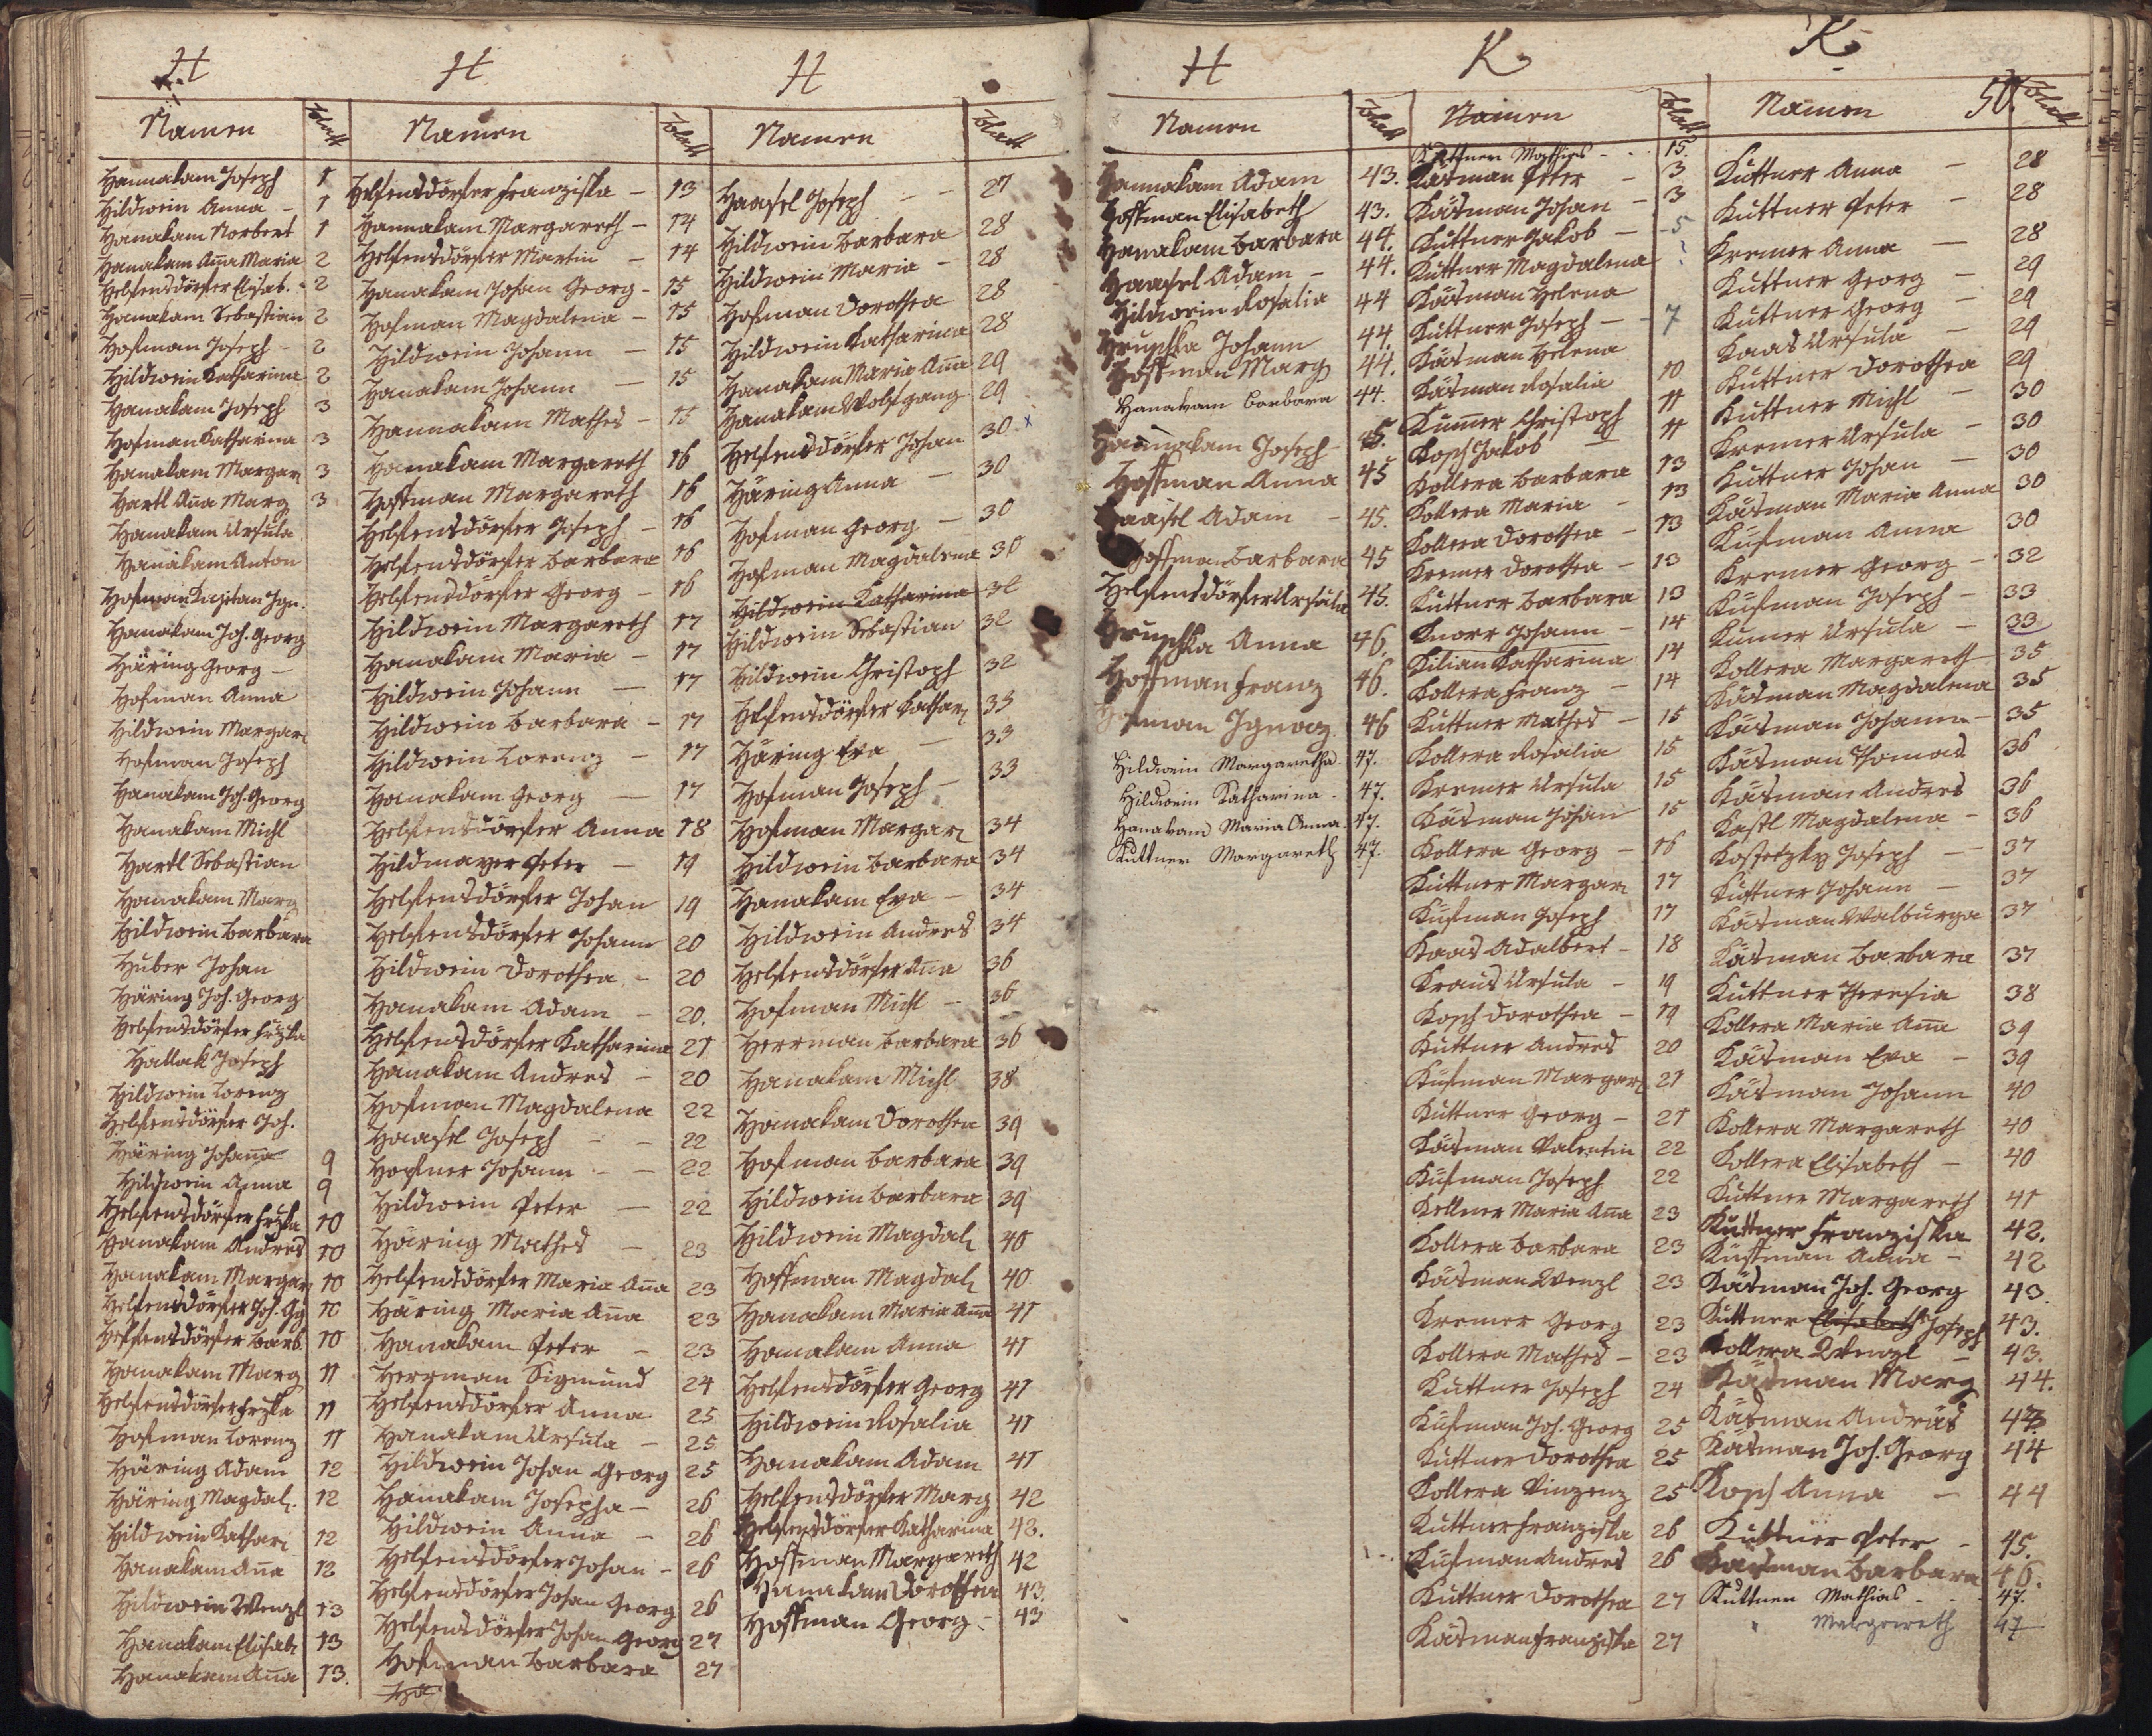 H
Namen Blatt
Hannakam Joseph 1
Hildwein Anna - 1
Hanakam Norbert 1
Hanakam Anna Maria 2
Helfensdörfer Elisab. - 2
Hanakam Sebastian 2
Hofman Joseph - 2
Hildwein Katharina 2
Hanakam Joseph 3
Hofman Katharina 3
Hanakam Margar 3
Hartl Anna Marg 3
Hanakam Ursula
Hanakam Anton
Hofman Kajetan Ign.
Hanakam Joh. Georg
Häring Georg -
Hofman Anna
Hildwein Margar
Hofman Joseph
Hanakam Joh. Georg
Hanakam Michl
Hartl Sebastian
Hanakam Marg
Hildwein Barbara
Huber Johan
Häring Joh. Georg
Helfensdörfer Frzka
Hallak Joseph
Hildwein Lorenz
Helfensdörfer Joh.
Häring Johanna 9
Hildwein Anna 9
Helfensdörfer Frzka 10
Hanakam Andres 10
Hanakam Margar 10
Helfensdörfer Joh. Gg 10
Helfensdörfer Barb. 10
Hanakam Marg 11
Helfensdörfer Frzka 11
Hofman Lorenz 11
Häring Adam 12
Häring Magdal. 12
Hildwein Kathari 12
Hanakam Anna 12
Hildwein Wenzl 13
Hanakam Elisab 13
Hanakam Anna 13.
H
Namen Blatt
Helfensdörfer Franziska - 13
Hannakam Margareth - 14
Helfensdörfer Martin - 14
Hanakam Johan Georg - 15
Hofman Magdalena - 15
Hildwein Johann - 15
Hanakam Johann - 15
Hannakam Mathes - 15
Hanakam Margareth 16
Hoffman Margareth 16
Helfensdörfer Joseph - 16
Helfensdörfer Barbara 16
Helfensdörfer Georg - 16
Hildwein Margareth 17
Hanakam Maria - 17
Hildwein Johann - 17
Hildwein Barbara - 17
Hildwein Lorenz - 17
Hanakam Georg - 17
Helfensdörfer Anna 18
Hildmayer Peter - 19
Helfensdörfer Johan 19
Helfensdörfer Johann 20
Hildwein Dorothea - 20
Hanakam Adam - 20.
Helfensdörfer Katharina 21
Hanakam Andres - 20
Hofman Magdalena 22
Haasel Joseph - - 22
Hopfner Johann - - 22
Hildwein Peter - 22
Häring Mathes - 23
Helfensdörfer Maria Anna 23
Häring Maria Anna 23
Hanakam Peter - 23
Herrman Sigmund 24
Helfensdörfer Anna 25
Hanakam Ursula - 25
Hildwein Johan Georg 25
Hanakam Josepha - 26
Hildwein Anna - 26
Helfensdörfer Johan - 26
Helfensdörfer Johan Georg 26
Helfensdörfer Johan Georg 27
Hofman Barbara 27
Ha
H
Namen Blatt
Haasel Joseph - 27
Hildwein Barbara 28
Hildwein Maria - 28
Hofman Dorothea 28
Hildwein Katharina 28
Hanakam Maria Anna 29
Hanakam Wolfgang 29
Helfensdörfer Johan 30 x
Häring Anna - 30
Hofman Georg - 30
Hofman Magdalena 30
Hildwein Katharina 32
Hildwein Sebastian 32
Hildwein Christoph 32
Helfensdörfer Kathar 33
Häring Eva - 33
Hofman Joseph - 33
Hofman Margar 34
Hildwein Barbara 34
Hanakam Eva - 34
Hildwein Andres 34
Helfensdörfer Anna 36
Hofman Michl - 36
Herrman Barbara 36
Hanakam Michl 38
Hanakam Dorothea 39
Hofman Barbara 39
Hildwein Barbara 39
Hildwein Magdal 40
Hoffman Magdal 40
Hanakam Maria Anna 41
Hanakam Anna 41
Helfensdörfer Georg 41
Hildwein Rosalia 41
Hanakam Adam 41
Helfensdörfer Marg 42
Helfensdörfer Katharina 42.
Hoffman Margareth 42
Hanakam Dorothea 43.
Hoffman Georg - 43
H
Namen Blatt
Hannakam Adam 43.
Hoffman Elisabeth 43.
Hanakam Barbara 44.
Haasel Adam - 44.
Hildwein Rosalia 44
Hruschka Johann 44.
Hoffman Marg 44.
Hanakam Barbara 44.
Hannakam Joseph 45.
Hoffman Anna 45
Haasel Adam - 45.
Hoffman Barbara 45
Helfensdörfer Ursula 45.
Hruschka Anna 46.
Hoffman Franz 46.
Hofman Ignaz 46
Hildwein Margaretha 47.
Hildwein Katharina - 47.
Hanakam Maria Anna. 47.
Kuttner Margareth 47.
K
Namen Blatt
Kuttner Mathias - . . 15.
Käsman Peter - 3
Käsman Johan - 3
Kuttner Jakob - - 5
Kuttner Magdalena
Käsman Helena
Kuttner Joseph - - 7
Käsman Helena
Käsman Rosalia 10
Kumer Christoph 11
Kosch Jakob - 11
Kollera Barbara 13
Kollera Maria - 13
Kollera Dorothea - 13
Kremer Dorothea - 13
Kuttner Barbara 13
Knorr Johann - 14
Kilian Katharina 14
Kollera Franz - 14
Kuttner Mathes - 15
Kollera Rosalia 15
Kremer Ursula 15
Käsman Johan 15
Kollera Georg - 16
Kuttner Margar 17
Kufman Joseph 17
Kaas Adalbert - 18
Kraus Ursula - 19
Kosch Dorothea - 19
Kuttner Andres 20
Kufman Margar 21
Kuttner Georg - 21
Käsman Valentin 22
Kufman Joseph 22
Kellner Maria Anna 23
Kollera Barbara 23
Käsman Wenzl 23
Kremer Georg 23
Kollera Mathes - 23
Kuttner Joseph 24
Kufman Joh. Georg 25
Kuttner Dorothea 25
Kollera Vinzenz 25
Kuttner Franziska 26
Kufman Andres 26
Kuttner Dorothea 27
Käsman Franziska 27
K
50.
Namen Blatt
Kuttner Anna - 28
Kuttner Peter - 28
Kremer Anna - 28
Kuttner Georg - 29
Kuttner Georg - 29
Kaas Ursula - 29
Kuttner Dorothea 29
Kuttner Michl - 30
Kremer Ursula - 30
Kuttner Johan - 30
Käsman Maria Anna 30
Kufman Anna 30
Kremer Georg - 32
Kufman Joseph - 33
Kumer Ursula - 33
Kollera Margareth 35
Käsman Magdalena 35
Käsman Johann - 35
Käsman Thomas 36
Käsman Andres 36
Kastl Magdalena - 36
Kostetzky Joseph - 37
Kuttner Johann - 37
Käsman Walburga 37
Käsman Barbara 37
Kuttner Theresia 38
Kollera Maria Anna 39
Käsman Eva - 39
Käsman Johann 40
Kollera Margareth 40
Kollera Elisabeth - 40
Kuttner Margareth 41
Kuttner Franziska 42.
Kuffman Anna - 42
Käsman Joh. Georg 43.
Kuttner Elisabeth Joseph 43.
Kollera Wenzl - 43.
Käsman Marg 44.
Käsman Andräs
Käsman Joh. Georg 44
Kosch Anna - 44
Kuttner Peter - 45.
Käsman Barbara 46.
Kuttner Mathias - . . 47.
" Margareth 47